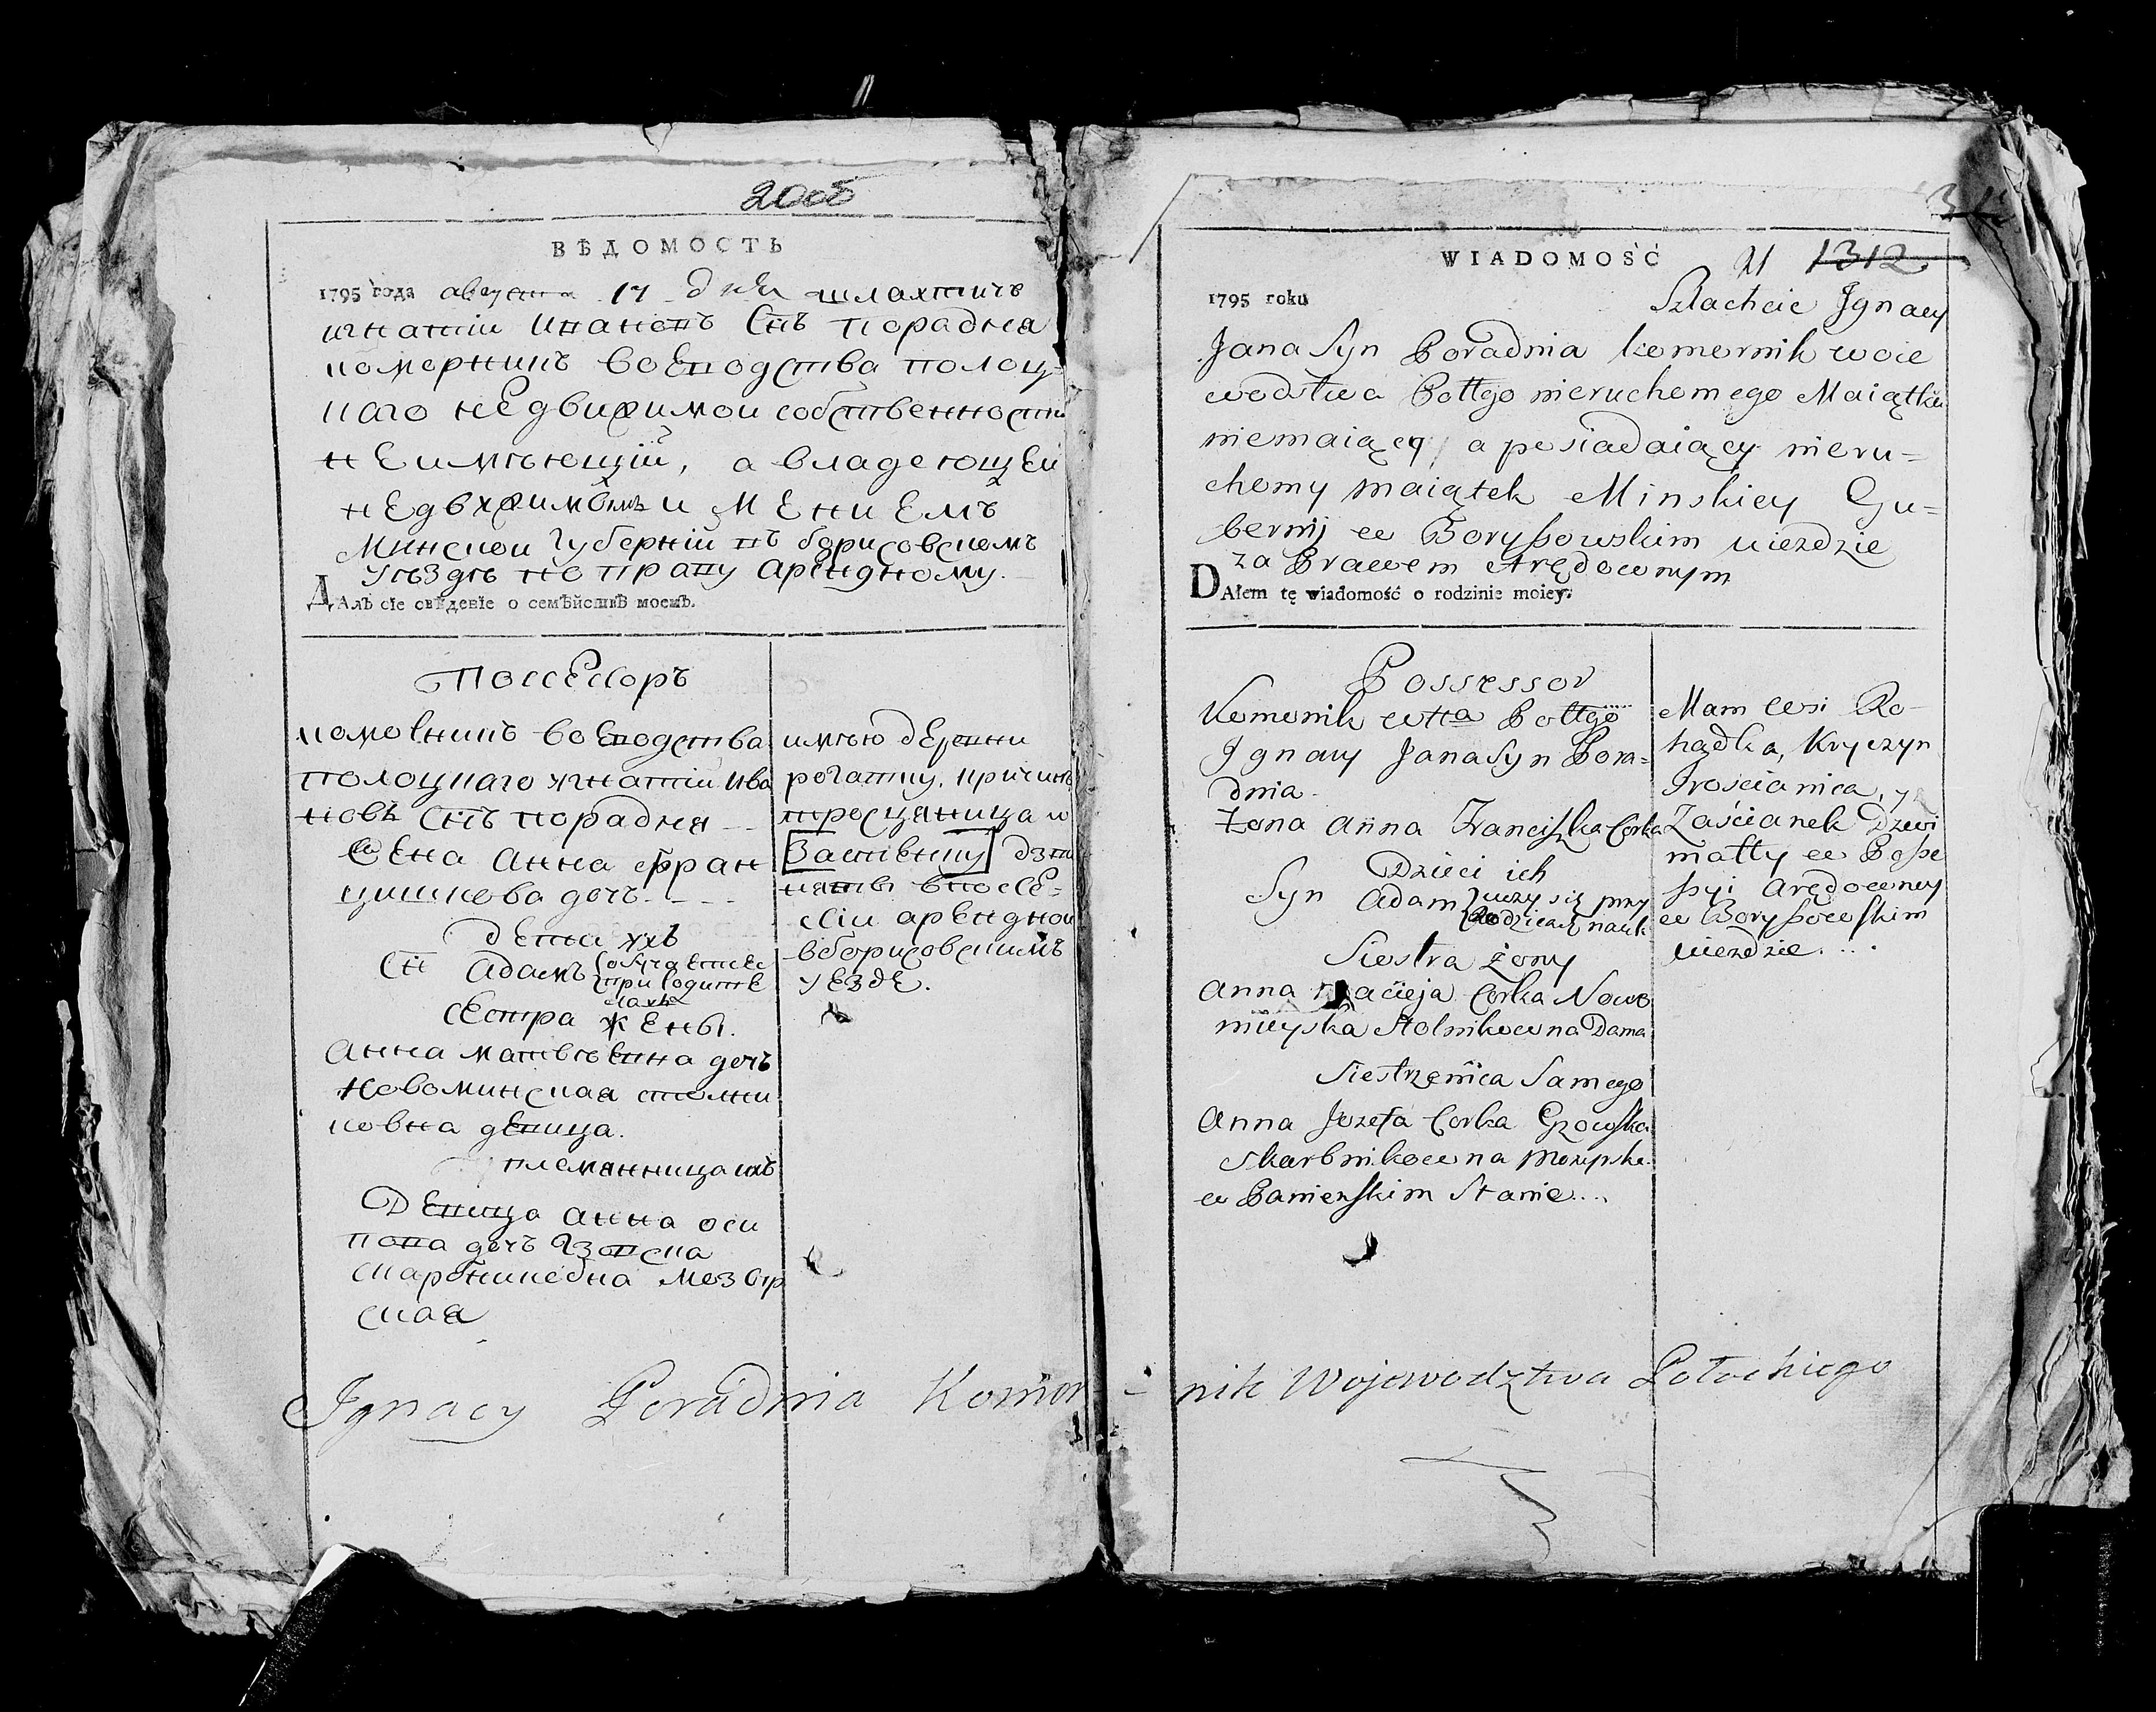 2005
ВѢДОМОСТЬ
1795 года августа 17 дня шляхтичъ
игнатiи ивановъ Снъ порадня
коморникъ воЕводства полоц-
каго нЕдвижимои собственности
нЕимѣющiй, а владеющЕи
нЕдвхжимымъ и мЕниЕмъ
Минской губернiи въ борисовскомъ
уѣздѣ по праву арЕндному.
ДАлъ сiе свѣденiе о семѣйствѣ моемъ.
поссЕссоръ
коморникъ воЕводства
полоцкаго игнатiи ива
новъ Снъ порадня
жЕна анна фран
цишкова дочь
дЕти ихъ
Сн адамъ обучаЕтсе
при родитЕ
лахъ
сЕстра жЕны.
анна матвѣЕвна дочъ
новоминская столни
ковна дЕвица.
племянница ихъ
дЕвица анна оси
пова дочъ гзовска
скарбниковна мозыр
ская
имѣю дЕревни
рогатку, кричинъ
тросцяница и
застЕнку дзви
няты впоссЕ-
сiи арЕндной
вборисовскимъ
уЕздЕ.
WIADOMOŚĆ
21 1312
1795 roku
Szlachcic Jgnacy
Jana Syn Poradnia komornik woie
wodstwa Połłgo nieruchomego Maiątku
niemaiący, a posiadaiący nieru=
chomy maiątek Minskiey Gu=
bernij w Borysowskim uieździe
za Prawem Arędownym
DAłem tę wiadomość o rodzinie moiey.
Possessor
Komornik wtta Połłgo
Jgnacy Jana Syn Pora=
dnia
Żona anna Franciszka Corka
Dzieci ich
Syn adam uczy się przy
Rodzicach nauk
Siestra żony
anna Macieja Corka Nowo
mieyska Stolnikowna Dama
Siestrzenica Samego
anna Jozefa Corka Gzowska
skarbnikowna mozyrska
w Panieńskim Stanie
Mam wsi Ro-
hądka, Kryczyn
Trościanica, y
Zaścianek Dzwi
małły w Posse
ssyi arędowney
w Borysowskim
uieździe
Jgnacy Poradnia Komor-nik Wojewodztwa Połockiego